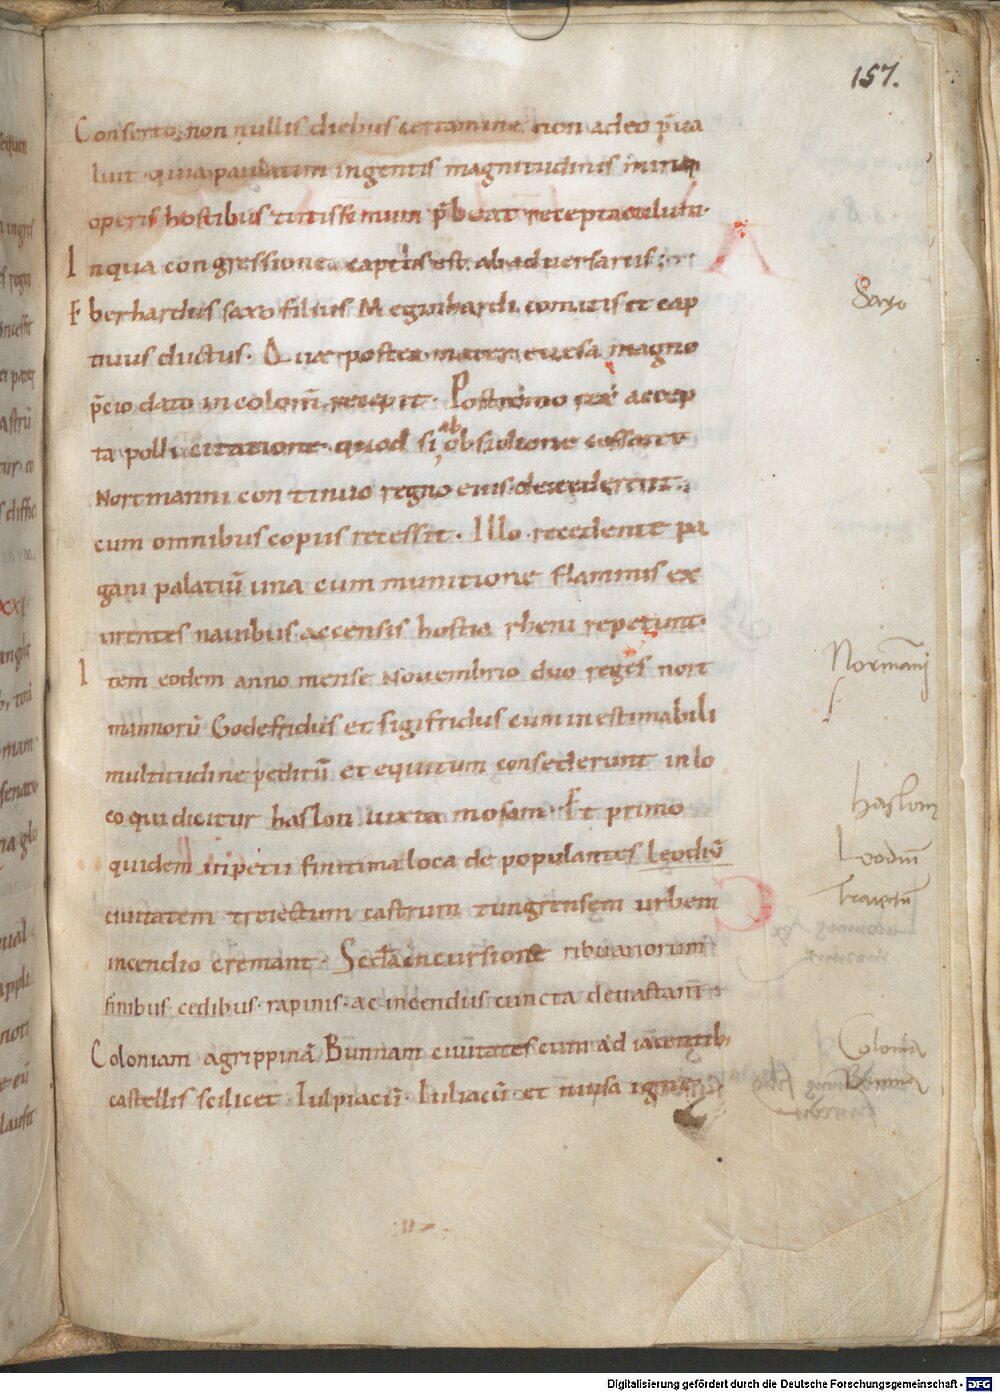 157.
Conserto non nullis diebus certamine non adeo p̄ua
luit quia paudatum ingentis magnitudinis miriq;
operis hostibus tutissimum p̄beat receptaculum·
In qua congressione captus est ab adversariis
Eberhardus saxo filius Meginhardi comitis et cap
tiuus ductus· Quẽ postea mater euesa magno
p̄cio dato incolom̄ recepit· Postremo rex accep
ta pollicitatione quod si ab obsidione cessaret
Nortmanni continuo regno eius decederent·
cum omnibus copiis recessit· Illo recedente pa
gani palatiū una cum munitione flammis ex
urentes nauibus accensis hostia rheni repetunt·
Item eodem anno mense Nouembrio duo reges nort
mannorū Godefridus et sigifridus cum inestimabili
multitudine peditū et equitum consederunt in lo
co qui dicitur haslon iuxta mosam· Et primo
quidem impetu finitima loca depopulantes Leodiū
ciuitatem treiectum castrum tungrensem urbem
incendio cremant· Sec̄da incursione ribuariorum
finibus cedibus· rapinis· ac incendiis cuncta deuastant̄
Coloniam agrippinā Bunnam ciuitates cum adiacentib;
castellis scilicet· Iulpiacū· Iuliacū· et niusa igne
Saxo
Normanj
haslon
Leodiū
Traiectū
Colonia
Bonna